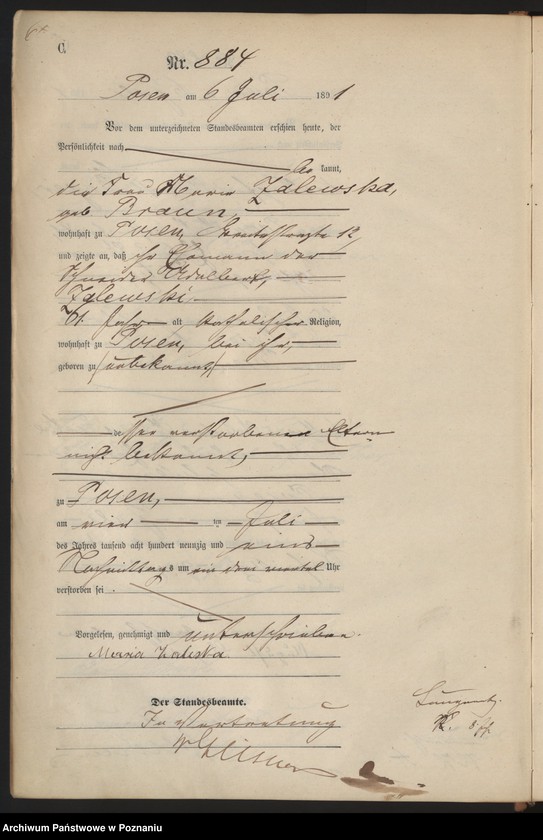 C.
Nr. 884
Posen am 6 Juli 1891
Vor dem unterzeichneten Standesbeamten erschien heute, der
Persönlichkeit nach
be kannt,
die Frau Maria Zalewska,
geb Braun,
wohnhaft zu Posen, 12,
und zeigte an, daß ihr Ehemann der
Schneider Adalbert
Zalewski
Jahr alt katholischer Religion,
wohnhaft zu Posen, bei ihr,
geboren zu (unbekannt)
dessen verstorbene Eltern
nicht bekannt,
zu Posen,
am vier ten Juli
des Jahres tausend acht hundert neunzig und eins
Nachmittags um ein drei viertel Uhr
verstorben sei.
Vorgelesen, genehmigt und unterschrieben.
Maria Zaleska
Der Standesbeamte.
In Vertretung
Archiwum Państwowe w Poznaniu